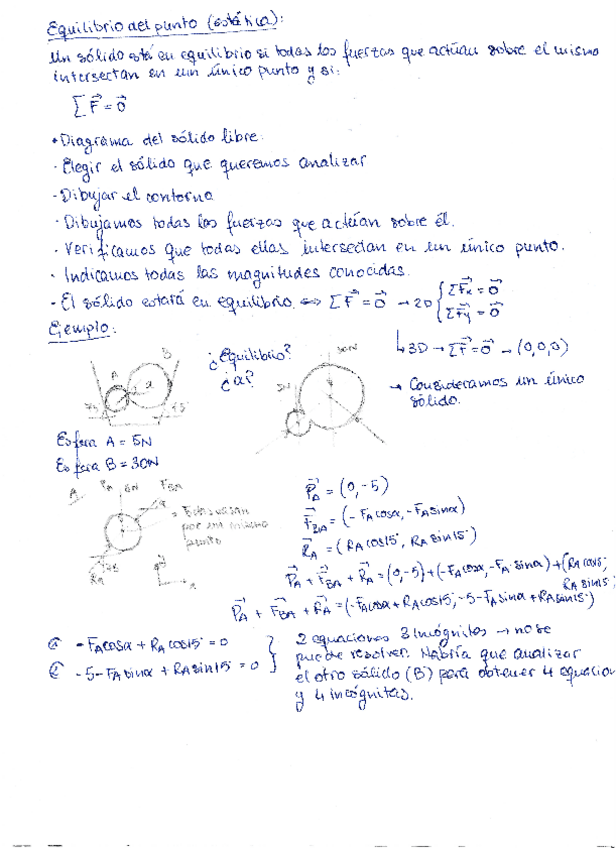 Equilibrio del punto (estática):
Un sólido está en equilibrio si todas las fuerzas que actúan sobre el mismo
intersectan en un único punto y si:
∑F⃗ = 0⃗
• Diagrama del sólido libre.
· Elegir el sólido que queremos analizar
· Dibujar el contorno
· Dibujamos todas las fuerzas que actúan sobre él.
· Verificamos que todas ellas intersectan en un único punto.
· Indicamos todas las magnitudes conocidas.
· El sólido estará en equilibrio ⟺ ∑F⃗ = 0⃗ → 2D { ∑F⃗x = 0⃗
∑F⃗y = 0⃗
↳ 3D → ∑F⃗ = 0⃗ → (0,0,0)
Ejemplo:
A
B
α
¿Equilibrio?
¿α?
30N
→ Consideramos un único
sólido.
Esfera A = 5N
Esfera B = 30N
A
5N
F⃗BA
por un mismo
punto
R⃗A
P⃗A = (0, -5)
F⃗BA = (-FA cosα, -FA sinα)
R⃗A = (RA cos15°, RA sin15°)
P⃗A + F⃗BA + R⃗A = (0,-5) + (-FA cosα, -FA sinα) + (RA cos15°,
RA sin15°)
P⃗A + F⃗BA + R⃗A = (-FA cosα + RA cos15°, -5 - FA sinα + RA sin15°)
-FA cosα + RA cos15° = 0
-5 - FA sinα + RA sin15° = 0
2 equaciones 3 incógnitas → no se
puede resolver. Habría que analizar
el otro sólido (B) para obtener 4 equacion
y 4 incógnitas.